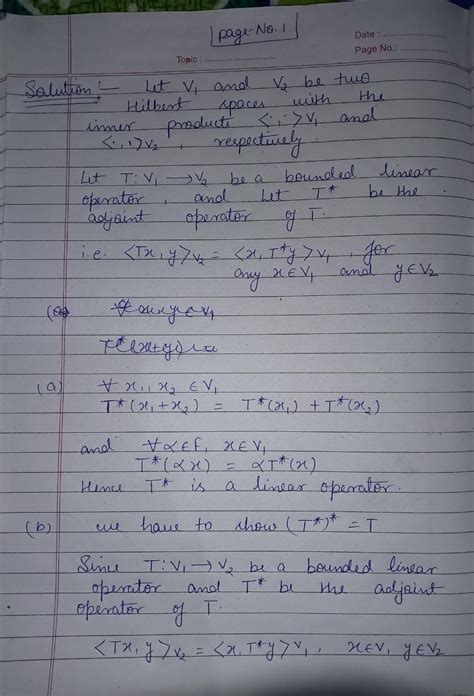 page-No. 1
Date :
Page No.:
Topic :
Solution :- Let V₁ and V₂ be two
Hilbert spaces with the
inner products <·,·>V₁ and
<·,·>V₂, respectively.
Let T: V₁ → V₂ be a bounded linear
operator, and let T* be the
adjoint operator of T.
i.e. <Tx, y>V₂ = <x, T*y>V₁, for
any x ∈ V₁ and y ∈ V₂
(a)
(a) ∀ x₁, x₂ ∈ V₁
T*(x₁+x₂) = T*(x₁) + T*(x₂)
and ∀ α ∈ F, x ∈ V₁
T*(αx) = αT*(x)
Hence T* is a linear operator.
(b) we have to show (T*)* = T
Since T: V₁ → V₂ be a bounded linear
operator and T* be the adjoint
operator of T.
<Tx, y>V₂ = <x, T*y>V₁, x∈V₁ y∈V₂